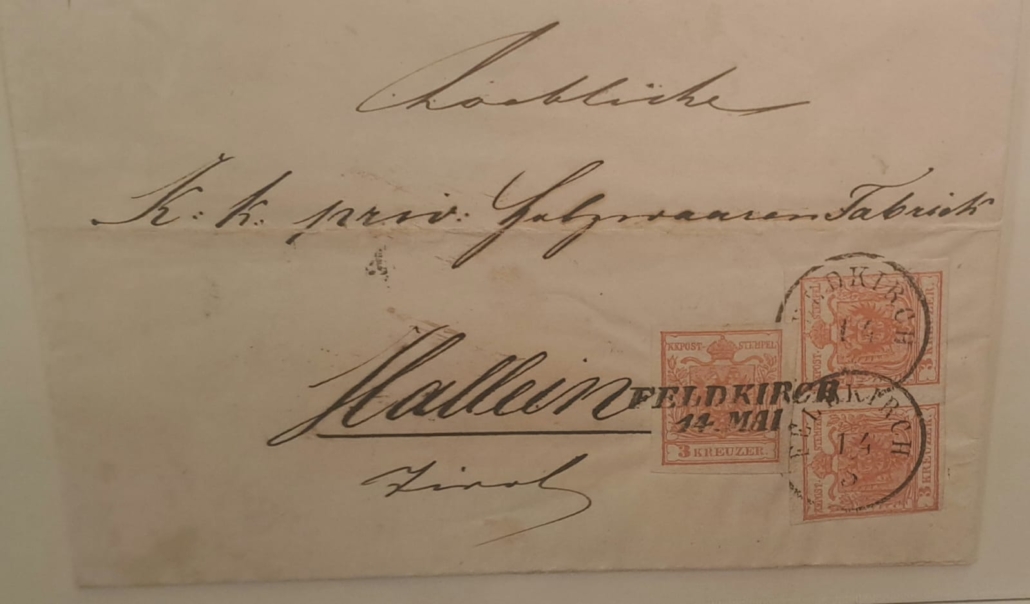 Loebliche
K: k: priv: Holzwaaren Fabrick
Hallein
Tirol
KKPOST-STEMPEL
3 KREUZER.
FELDKIRCH
14. MAI
FELDKIRCH
14
KKPOST-STEMPEL
3 KREUZER.
FELDKIRCH
14
5
KKPOST-STEMPEL
3 KREUZER.